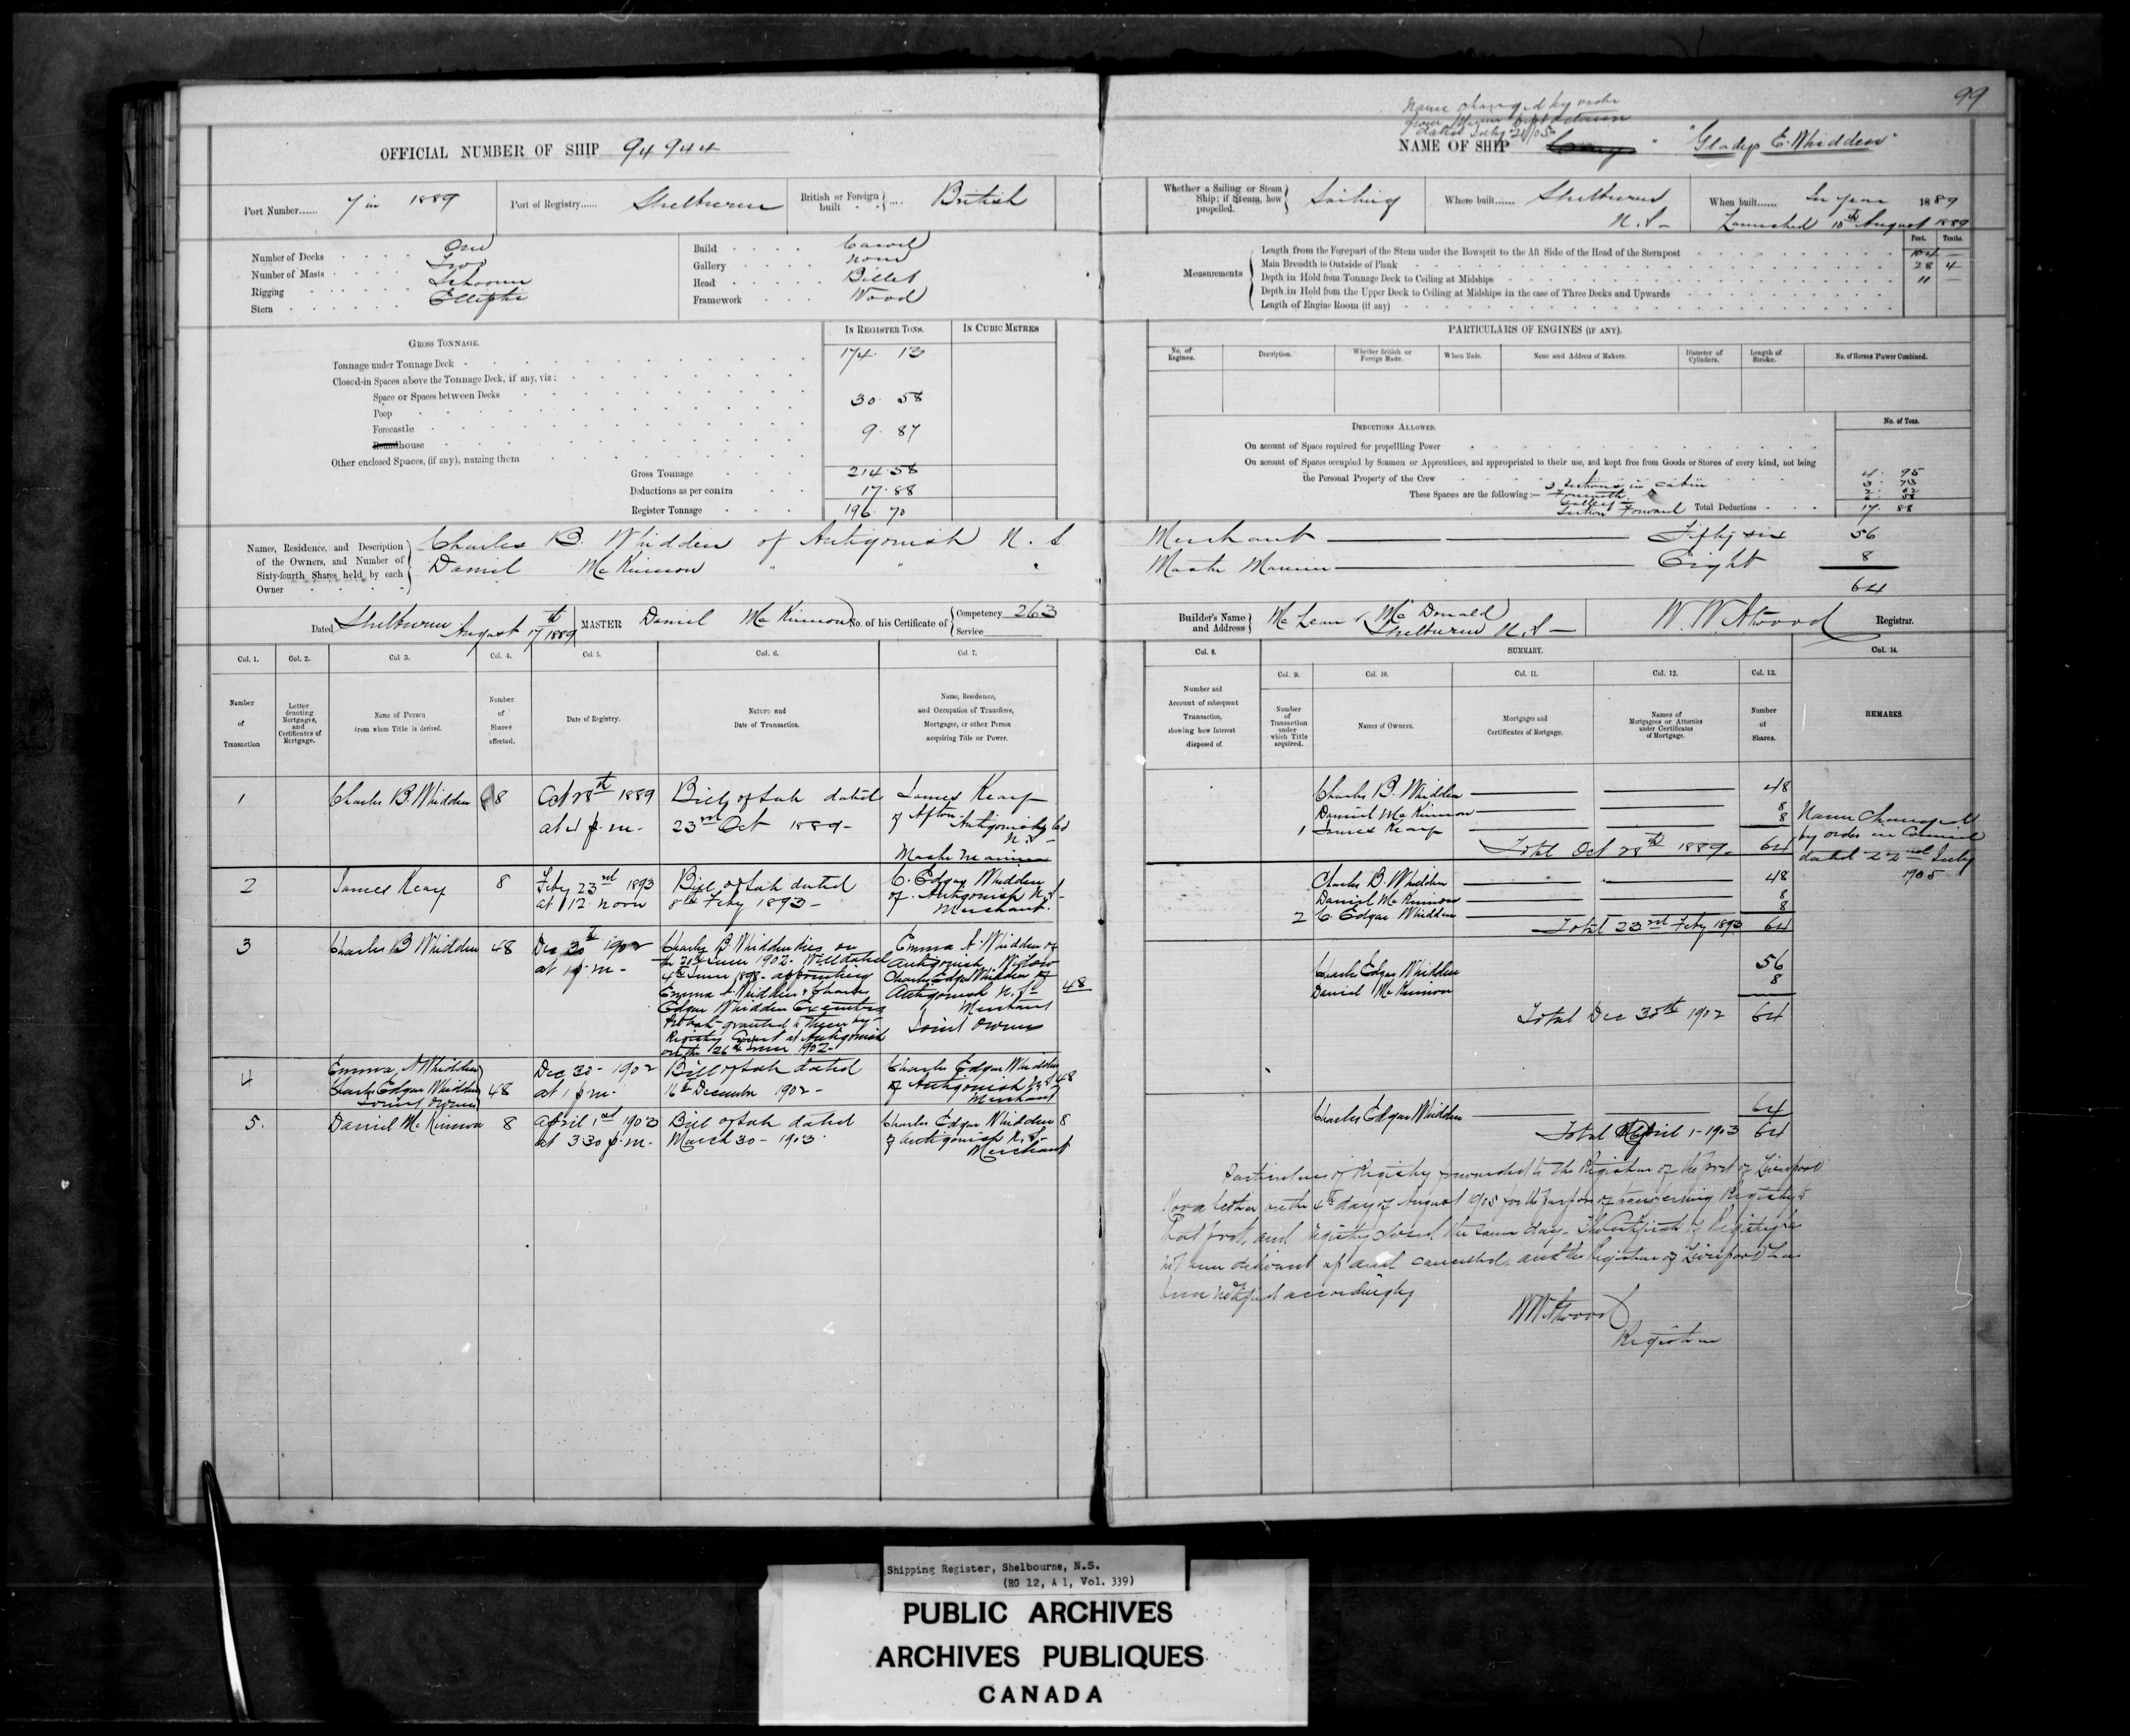 99
Name changed by order
from Marine Dept Ottawa
dated July 26/05
OFFICIAL NUMBER OF SHIP 94944
NAME OF SHIP " "Gladys E. Whidden"
Port Number...... 7 in 1889
Port of Registry...... Shelburne
British or Foreign built .... British
Whether a Sailing or Steam Ship; if Steam, how propelled. Sailing
Where built...... Shelburne N.S.
When built...... In year 1889
Launched 10th August 1889
Number of Decks One
Number of Masts Two
Rigging Schooner
Stern Elliptic
Build Carvel
Gallery None
Head Billet
Framework Wood
Measurements
Feet. Tenths.
Length from the Forepart of the Stem under the Bowsprit to the Aft Side of the Head of the Sternpost 104 —
Main Breadth to Outside of Plank 28 4
Depth in Hold from Tonnage Deck to Ceiling at Midships 11 —
Depth in Hold from the Upper Deck to Ceiling at Midships in the case of Three Decks and Upwards
Length of Engine Room (if any)
GROSS TONNAGE.
IN REGISTER TONS.
IN CUBIC METRES
Tonnage under Tonnage Deck 174. 13
Closed-in Spaces above the Tonnage Deck, if any, viz:
Space or Spaces between Decks
Poop 30. 58
Forecastle
Roundhouse 9. 87
Other enclosed Spaces, (if any), naming them
Gross Tonnage 214.58
Deductions as per contra 17.88
Register Tonnage 196.70
PARTICULARS OF ENGINES (IF ANY).
No. of Engines.
Description.
Whether British or Foreign Made.
When Made.
Name and Address of Makers.
Diameter of Cylinders.
Length of Stroke.
No. of Horses Power Combined.
DEDUCTIONS ALLOWED.
No. of Tons.
On account of Space required for propelling Power
On account of Spaces occupied by Seamen or Apprentices, and appropriated to their use, and kept free from Goods or Stores of every kind, not being
the Personal Property of the Crew 4. 95
These Spaces are the following:— 3 Sections in Cabin
Section Forward Total Deductions 17. 88
Names, Residence, and Description of the Owners, and Number of Sixty-fourth Shares held by each Owner
Charles B. Whidden of Antigonish N.S. Merchant — Fifty six 56
Daniel McKinnon " " " Master Mariner — Eight 8
64
Dated Shelburne August 17th 1889
MASTER Daniel McKinnon
No. of his Certificate of Competency 263
Service
Builder's Name and Address McLean & McDonald
Shelburne N.S.
W. W. Atwood Registrar.
Col. 1.
Number of Transaction
Col. 2.
Letter denoting Mortgages, and Certificates of Mortgage.
Col. 3.
Name of Person from whom Title is derived.
Col. 4.
Number of Shares affected.
Col. 5.
Date of Registry.
Col. 6.
Nature and Date of Transaction.
Col. 7.
Name, Residence, and Occupation of Transferee, Mortgagee, or other Person acquiring Title or Power.
Col. 8.
Number and Account of subsequent Transaction, showing how Interest disposed of.
SUMMARY.
Col. 9.
Number of Transaction under which Title acquired.
Col. 10.
Names of Owners.
Col. 11.
Mortgages and Certificates of Mortgage.
Col. 12.
Names of Mortgagees or Attornies under Certificates of Mortgage.
Col. 13.
Number of Shares.
Col. 14.
REMARKS.
1 Charles B. Whidden 8
Oct 28th 1889
at 4 p.m.
Bill of Sale dated
23rd Oct 1889
of Afton
Antigonish Co
N.S.
Master Mariner
2 8
Feby 23rd 1893
at 12 noon
Bill of Sale dated
8th Feby 1893
C. Edgar Whidden
of Antigonish N.S.
Merchant
3 Charles B Whidden 48
Dec 30th 1902
at 1 p.m.
Charles B Whidden dies on
the 20th June 1902. Will dated
4th June 1898 appointing
Emma A. Whidden & Charles
Edgar Whidden Executors
Probate granted to them by
Registry Court at Antigonish
on the 26th June 1902
Emma A. Whidden of
Antigonish Widow
Charles Edgar Whidden of
Antigonish N.S. 48
Merchant
Joint Owners
4 Emma A Whidden
Charles Edgar Whidden 48
Joint Owners
Dec 30 - 1902
at 1 p.m.
Bill of Sale dated
16th December 1902
Charles Edgar Whidden
of Antigonish N.S. 48
Merchant
5. Daniel McKinnon 8
April 1st 1903
at 3.30 p.m.
Bill of Sale dated
March 30 - 1903
Charles Edgar Whidden 8
of Antigonish N.S.
Merchant
Charles B. Whidden 48
Daniel McKinnon 8
1 8
Total Oct 28th 1889 64
Name Changed
by order in Council
dated 22nd July
1905
Charles B. Whidden 48
Daniel McKinnon 8
2 C. Edgar Whidden 8
Total 23rd Feby 1893 64
Charles Edgar Whidden 56
Daniel McKinnon 8
Total Dec 30th 1902 64
Charles Edgar Whidden 64
Total April 1 - 1903 64
Particulars of Registry forwarded to the Registrar of the port of Liverpool
Nova Scotia on the 4th day of August 1905 for the purpose of transferring Registry to
that port, and registry closed the same day. The Certificate of Registry has
not been delivered up and cancelled, and the Registrar of Liverpool has
been notified accordingly
W W Atwood
Registrar
Shipping Register, Shelbourne, N.S.
(RG 12, A 1, Vol. 339)
PUBLIC ARCHIVES
ARCHIVES PUBLIQUES
CANADA